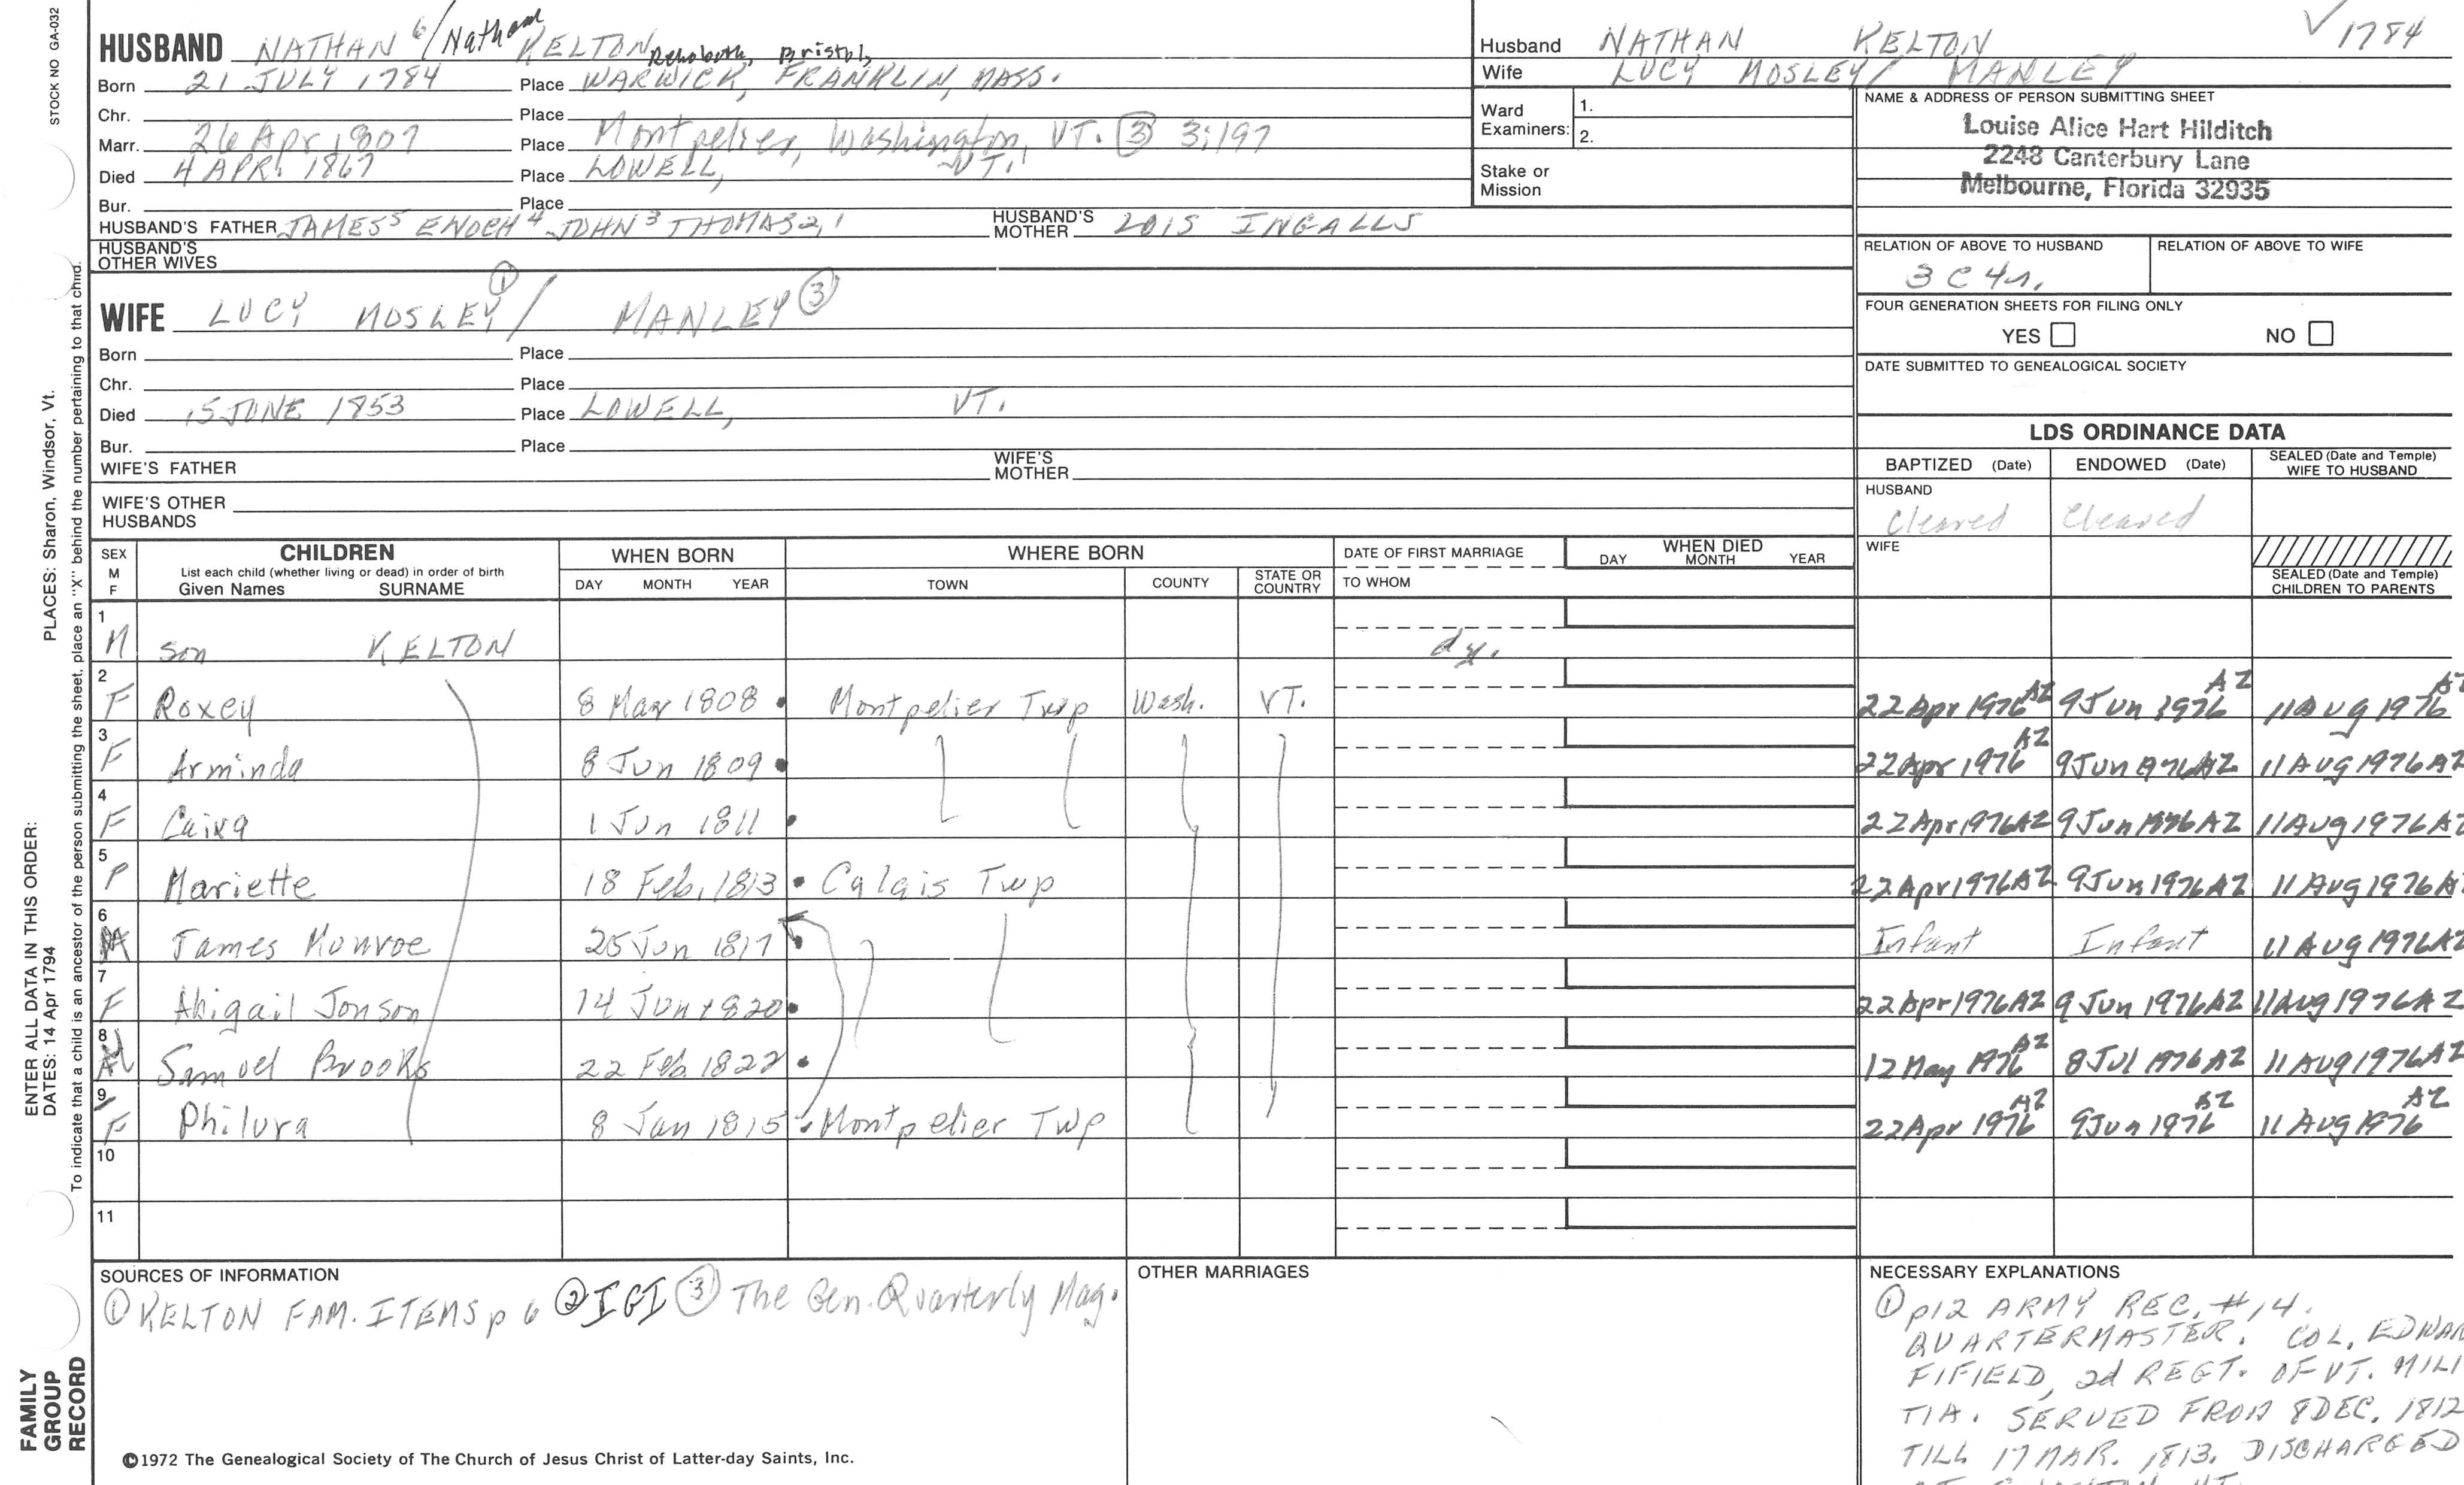 STOCK NO GA-032
HUSBAND NATHAN 6/Nathan KELTON
Rehoboth, Bristol,
Born 21 JULY 1784 Place WARWICK, FRANKLIN, MASS.
Chr. Place
Marr. 26 Apr 1807 Place Montpelier, Washington, VT. ③ 3:197
Died 4 APR. 1867 Place LOWELL, VT.
Bur. Place
HUSBAND'S FATHER JAMES5 ENOCH4 JOHN3 THOMAS2,1 HUSBAND'S MOTHER LOIS INGALLS
HUSBAND'S OTHER WIVES
WIFE LUCY MOSLEY ① / MANLEY ③
Born Place
Chr. Place
Died 15 JUNE 1853 Place LOWELL, VT.
Bur. Place
WIFE'S FATHER WIFE'S MOTHER
WIFE'S OTHER HUSBANDS
Husband NATHAN KELTON √ 1784
Wife LUCY MOSLEY/ MANLEY
Ward Examiners: 1.
2.
Stake or Mission
NAME & ADDRESS OF PERSON SUBMITTING SHEET
Louise Alice Hart Hilditch
2248 Canterbury Lane
Melbourne, Florida 32935
RELATION OF ABOVE TO HUSBAND RELATION OF ABOVE TO WIFE
3 C 4r.
FOUR GENERATION SHEETS FOR FILING ONLY
YES NO
DATE SUBMITTED TO GENEALOGICAL SOCIETY
LDS ORDINANCE DATA
BAPTIZED (Date) ENDOWED (Date) SEALED (Date and Temple) WIFE TO HUSBAND
HUSBAND
Cleared Cleared
WIFE
SEALED (Date and Temple) CHILDREN TO PARENTS
SEX M F CHILDREN WHEN BORN WHERE BORN DATE OF FIRST MARRIAGE WHEN DIED
List each child (whether living or dead) in order of birth
Given Names SURNAME DAY MONTH YEAR TOWN COUNTY STATE OR COUNTRY TO WHOM DAY MONTH YEAR
1 M son KELTON dy.
2 F Roxey 8 Mar 1808 Montpelier Twp Wash. VT. 22 Apr 1976 AZ 9 Jun 1976 AZ 11 Aug 1976 AZ
3 F Arminda 8 Jun 1809 22 Apr 1976 AZ 9 Jun 1976 AZ 11 AUG 1976 AZ
4 F 1 Jun 1811 22 Apr 1976 AZ 9 Jun 1976 AZ 11 Aug 1976 AZ
5 F Mariette 18 Feb. 1813 Calais Twp 22 Apr 1976 AZ 9 Jun 1976 AZ 11 Aug 1976 AZ
6 M James Monroe 25 Jun 1817 Infant Infant 11 AUG 1976 AZ
7 F Abigail Jonson 14 Jun 1820 22 Apr 1976 AZ 9 Jun 1976 AZ 11 Aug 1976 AZ
8 M Samuel Brooks 22 Feb. 1822 12 May 1976 AZ 8 Jul 1976 AZ 11 AUG 1976 AZ
9 F Philura 8 Jan 1815 Montpelier Twp 22 Apr 1976 AZ 9 Jun 1976 AZ 11 Aug 1976 AZ
10
11
SOURCES OF INFORMATION
① KELTON FAM. ITEMS p 6 ② IGI ③ The Gen. Quarterly Mag.
©1972 The Genealogical Society of The Church of Jesus Christ of Latter-day Saints, Inc.
OTHER MARRIAGES
NECESSARY EXPLANATIONS
① p12 ARMY REC. #14.
QUARTERMASTER. COL. EDWAR
FIFIELD, 2d REGT. OF VT. MILI
TIA. SERVED FROM 8 DEC. 1812
TILL 17 MAR. 1813. DISCHARGED
ENTER ALL DATA IN THIS ORDER:
DATES: 14 Apr 1794 PLACES: Sharon, Windsor, Vt.
To indicate that a child is an ancestor of the person submitting the sheet, place an "X" behind the number pertaining to that child.
FAMILY GROUP RECORD